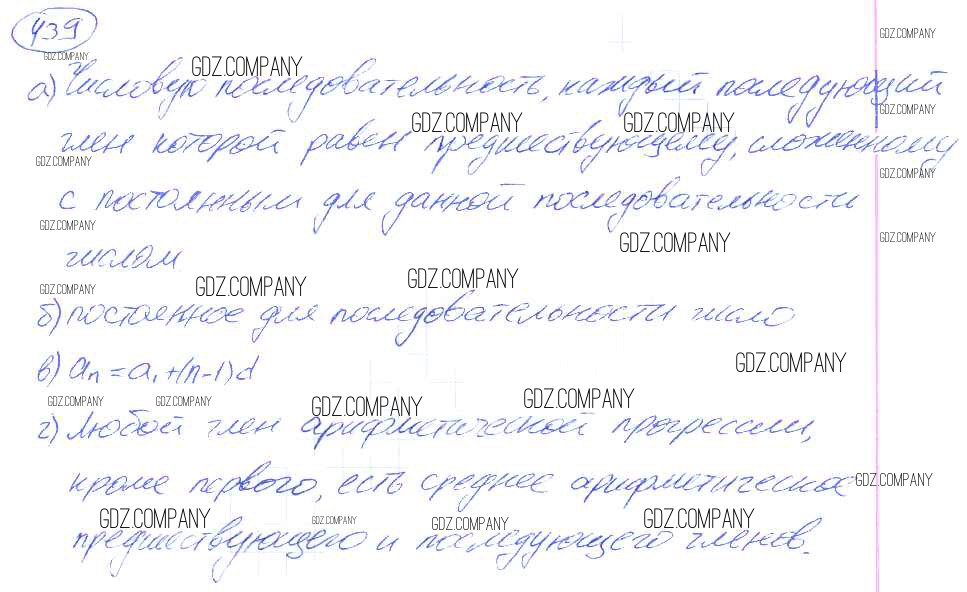 439
GDZ.COMPANY
GDZ.COMPANY GDZ.COMPANY
а) Числовую последовательность, каждый последующий
GDZ.COMPANY GDZ.COMPANY GDZ.COMPANY
член которой равен предшествующему, сложенному
GDZ.COMPANY GDZ.COMPANY
с постоянным для данной последовательности
GDZ.COMPANY GDZ.COMPANY GDZ.COMPANY
числом
GDZ.COMPANY GDZ.COMPANY GDZ.COMPANY
б) постоянное для последовательности число
GDZ.COMPANY
в) aₙ = a₁ + (n-1)d
GDZ.COMPANY GDZ.COMPANY GDZ.COMPANY GDZ.COMPANY
г) Любой член арифметической прогрессии,
кроме первого, есть среднее арифметическое GDZ.COMPANY
GDZ.COMPANY GDZ.COMPANY GDZ.COMPANY GDZ.COMPANY
предшествующего и последующего членов.